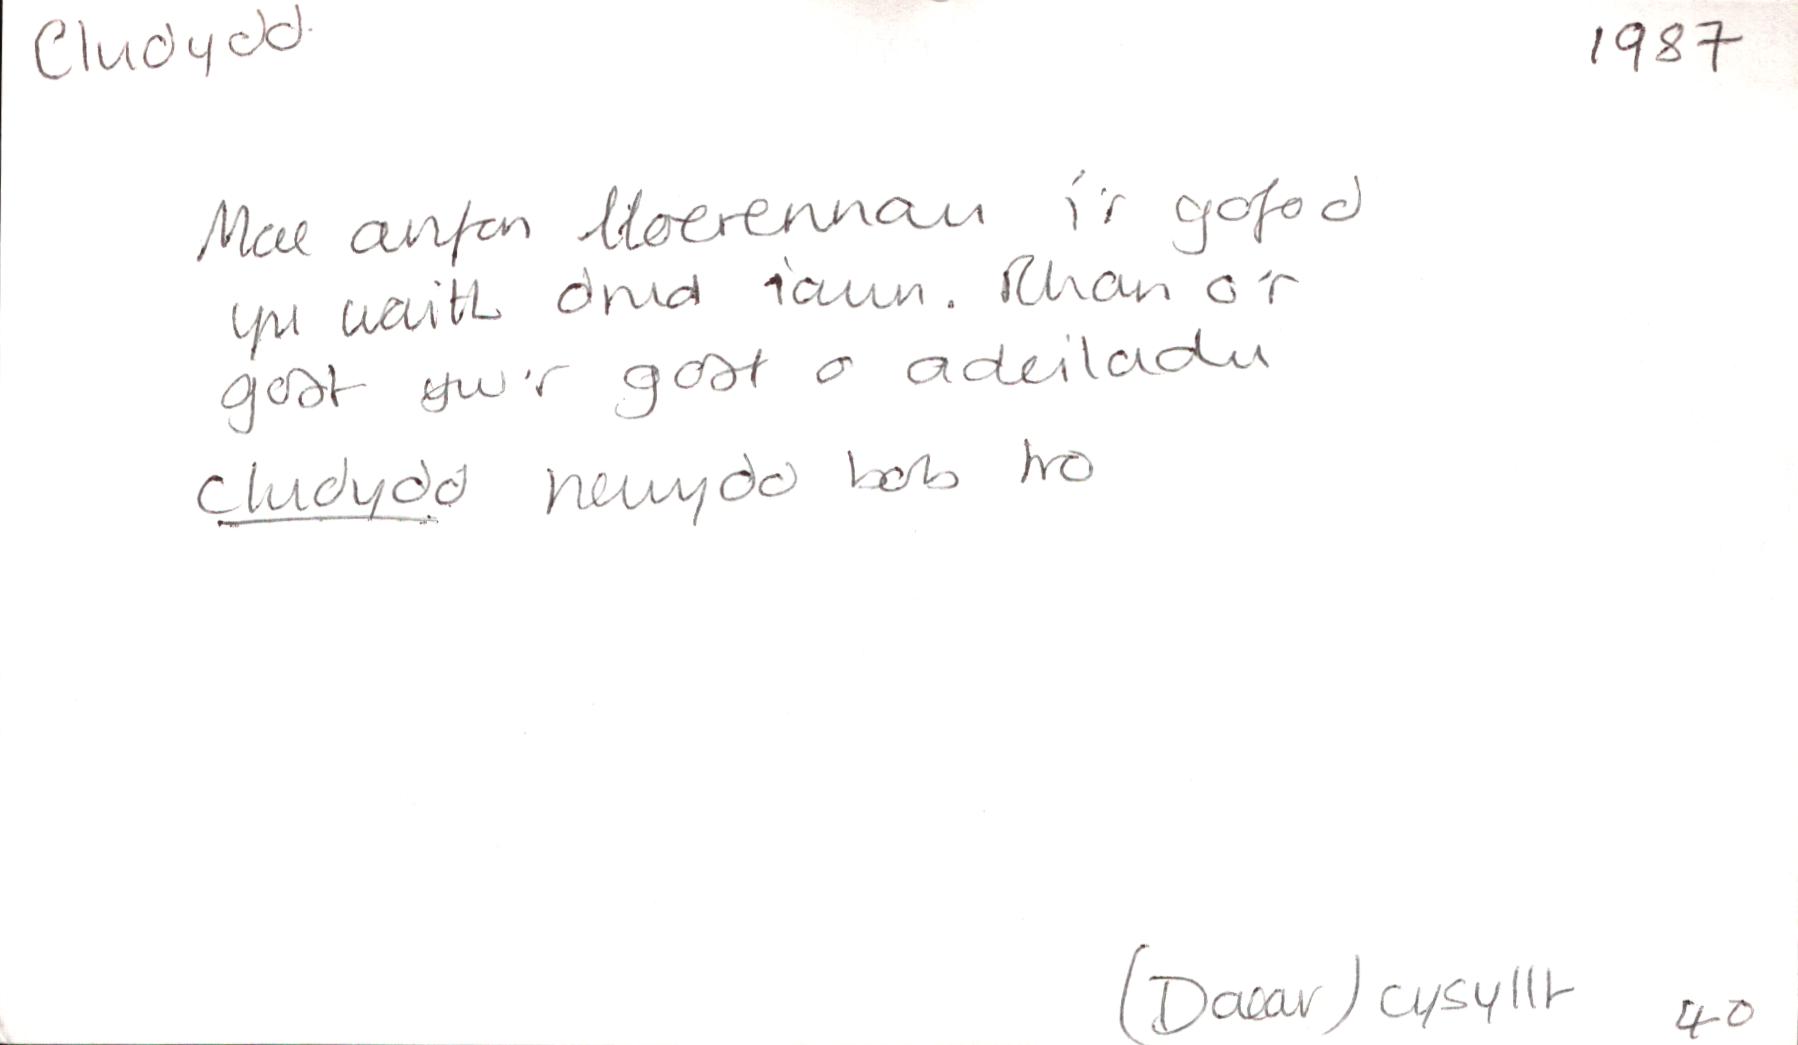 Cludydd 1987
Mae anfon lloerennau i'r gofod
yn waith drud iawn. Rhan o'r
gost yw'r gost o adeiladu
cludydd newydd bob tro
(Daear) cysyllt 40